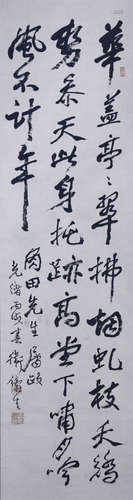 華蓋亭〻翠拂烟虬枝夭矯
勢參天此身托跡高堂下嘯夕吟
風不計年
田先生屬
光緒丙戌春